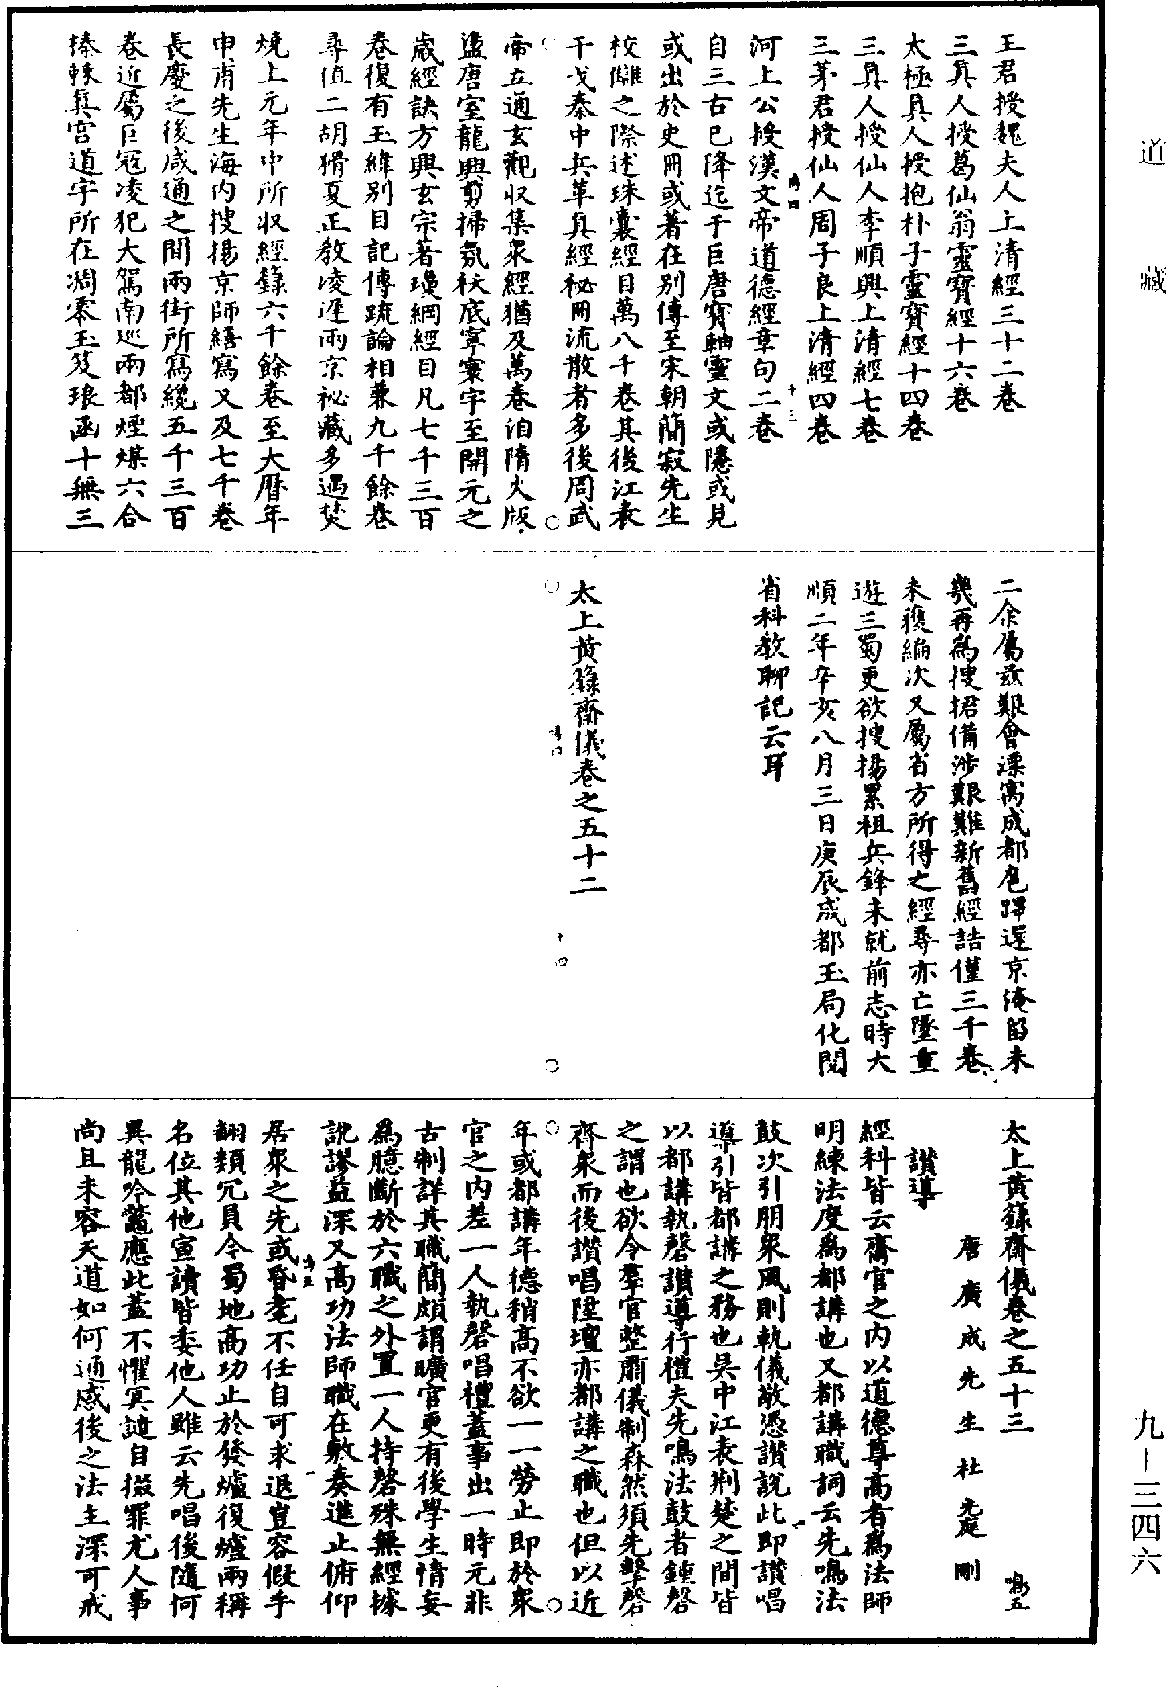 道藏
王君授魏夫人上清經三十二卷
三真人授葛仙翁靈寶經十六卷
太極真人授抱朴子靈寶經十四卷
三真人授仙人李順興上清經七卷
三茅君授仙人周子良上清經四卷
河上公授漢文帝道德經章句二卷
自三古已降迄于巨唐寶軸靈文或隱或見
或出於史冊或著在別傳至宋朝簡寂先生
校讎之際述珠囊經目萬八千卷其後江表
干戈秦中兵革真經秘冊流散者多後周武
帝立通玄觀收集衆經猶及萬卷洎隋火版
盪唐室龍興剪掃氛祅底寧寰宇至開元之
歲經訣方興玄宗著瓊綱經目凡七千三百
卷復有玉緯別目記傳疏論相兼九千餘卷
尋值二胡猾夏正教凌遲兩京祕藏多遇焚
燒上元年中所收經籙六千餘卷至大曆年
申甫先生海內搜揚京師繕寫又及七千卷
長慶之後咸通之間兩街所寫纔五千三百
卷近屬巨寇凌犯大駕南巡兩都煙煤六合
榛棘真宮道宇所在凋零玉笈琅函十無三
二余屬茲艱會漂寓成都扈蹕還京淹留未
幾再為搜捃備涉艱難新舊經誥僅三千卷
未獲編次又屬省方所得之經尋亦亡墜重
遊三蜀更欲搜揚累祖兵鋒未就前志時大
順二年辛亥八月三日庚辰成都玉局化閱
省科教聊記云耳
太上黃籙齋儀卷之五十二
太上黃籙齋儀卷之五十三
唐廣成先生杜光庭刪
讚導
經科皆云齋官之內以道德尊高者為法師
明練法度為都講也又都講職詞云先鳴法
鼓次引朋衆風則軌儀敬憑讚說此即讚唱
導引皆都講之務也吳中江表荊楚之間皆
以都講執磬讚導行禮夫先鳴法鼓者鍾磬
之謂也欲令羣官整肅儀制森然須先擊磬
齊衆而後讚唱陞壇亦都講之職也但以近
年或都講年德稍高不欲一一勞止即於衆
官之內差一人執磬唱禮蓋事出一時元非
古制詳其職簡頗謂曠官更有後學生情妄
為臆斷於六職之外置一人持磬殊無經據
訛謬益深又高功法師職在敷奏進止俯仰
居衆之先或昏耄不任自可求退豈容假手
翻類冗員今蜀地高功止於發爐復爐兩稱
名位其他宣讀皆委他人雖云先唱後隨何
異龍吟鼈應此蓋不懼冥譴自掇罪尤人事
尚且未容天道如何通感後之法主深可戒
九－三四六